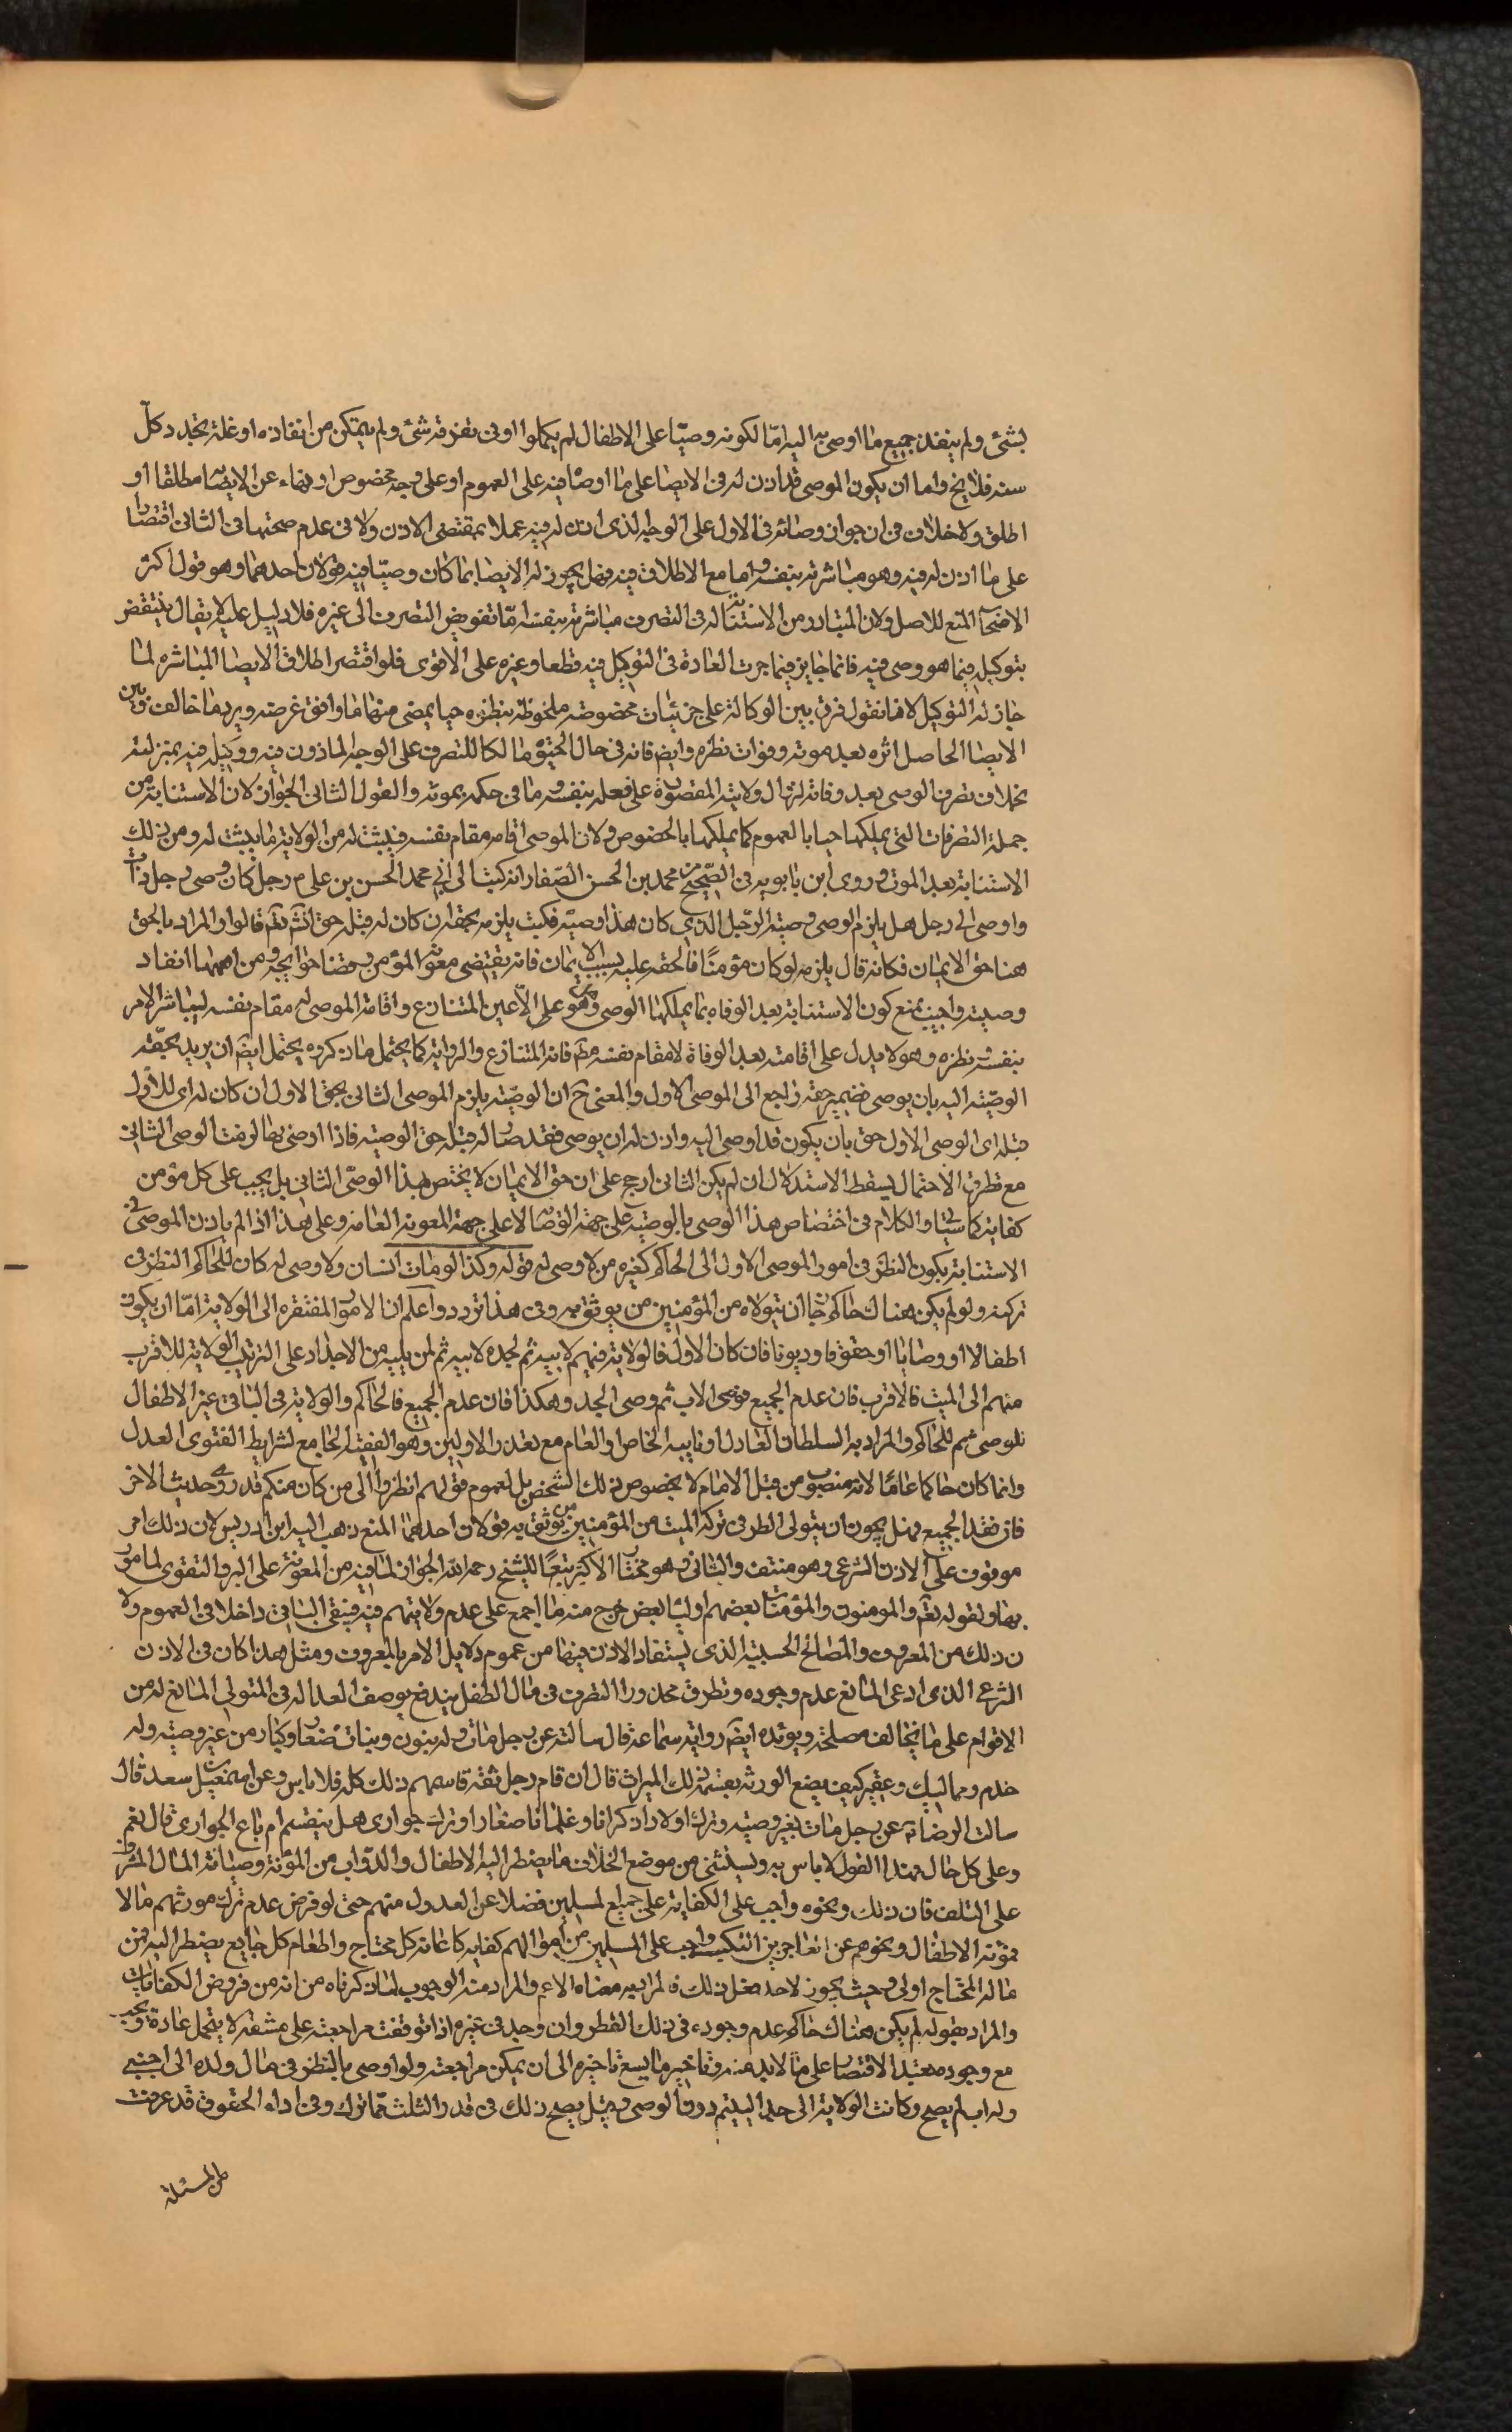 بشئ ولم ينفذ جميع ما اوصى به اليه امّا لكونه وصيّا على الاطفال لم يكملوا او فى تفرقة شئ ولم يتمكن من انفاذه او غلة يتجدد كلّ
سنة فلا يخ واما ان يكون الموصى قد اذن له فى الايصا على ما اوصا فيه على العموم او على وجه مخصوص او نهاه عن الايصا مطلقا او
اطلق ولا خلاف فى ان جواز وصائه فى الاول على الوجه الذى اذن له فيه عملا بمقتضى الاذن ولا فى عدم صحتها فى الثانى اقتصارا
على ما اذن له فيه وهو مباشرته بنفسه واما مع الاطلاق فيه فهل يجوز له الايصا بما كان وصيّا فيه قولان احدهما وهو قول اكثر
الاصحآ المنع للاصل ولان المتبادر من الاستنابة له فى التصرف مباشرته بنفسه امّا تفويض التصرف الى غيره فلا دليل عليه لا يقال ينتقض
بتوكيله فيما هو وصى فيه فانه جايز فيما جرت العادة فى التوكيل فيه قطعا وغيره على الاقوى فلو اقتصر اطلاق الايصا المباشره لما
جاز له التوكيل لانا نقول فرق بين الوكالة على جزئيات مخصوصة ملحوظة بنظره حيا يمضى منها ما وافق غرضه ويرد ما خالف وبين
الايصا الحاصل اثره بعد موته وفوات نظره وايض فانه فى حال الحيوة مالكا للتصرف على الوجه الماذون فيه ووكيله فيه بمنزلته
بخلاف تصرف الوصى بعد وفاته لزوال ولايته المقصورة على فعله بنفسه وما فى حكمه بموته والقول الثانى الجواز لان الاستنابة من
جملة التصرفات التى يملكها حيا بالعموم كما يملكها بالخصوص ولان الموصى اقامه مقام نفسه فيثبت له من الولاية ما يثبت له ومن ذلك
الاستنابة بعد الموت وروى ابن بابويه فى الصّحيح عن محمد بن الحسن الصّفار انه كتب الى ابى محمد الحسن بن على م رجل كان وصى رجل فمات
واوصى الى رجل هل يلزم الوصى وصية الرّجل الذى كان هذا وصيّه فكتب يلزمه بحقه ان كان له قبله حق انشآ تعآ قالوا والمراد بالحق
هنا حق الايمان فكانه قال يلزمه لو كان مؤمنًا فالحقه عليه بسبب الايمان فانه يقتضى معونة المؤمن وقضا حوايجه ومن اهمها انفاذ
وصيته واجيب بمنع كون الاستنابة بعد الوفاه بما يملكها الوصى وهو على الّاعين المتنازع واقامة الموصى له مقام نفسه ليباشر الامر
بنفسه ونظره وهو لا يدل على اقامته بعد الوفاة لا مقام نفسه مط فانه المتنازع والرواية كما يحتمل ما ذكروه يحتمل ايضا ان يريد بحقّه
الوصيّته اليه بان يوصى فضمير حقه راجع الى الموصى الاول والمعنى ح ان الوصيّة يلزم الموصى الثانى بحق الاول ان كان له اى للاول
قبله اى الوصى الاول حق بان يكون قد اوصى اليه واذن له ان يوصى فقد صار له قبله حق الوصيّه فاذا اوصى بها لزمت الوصى الثانى
مع تطرق الاحتمال يسقط الاستدلال ان لم يكن الثانى ارجح على ان حق الايمان لا يختص بهذا الوصّى الثانى بل يجب على كل مؤمن
كفاية كما سياتى والكلام فى اختصاص هذا الوصى بالوصية على جهة الوصاية لا على جهة المعونة العامه وعلى هذا اذا لم ياذن الموصى فى
الاستنابة يكون النظر فى امور الموصى الاول الى الحاكم كغيره من لا وصى له قوله وكذا لو مات انسان ولا وصى له كان للحاكم النظر فى
تركته ولو لم يكن هناك حاكم جا ان يتولاه من المؤمنين من يوثق به وفى هذا تردد واعلم ان الامور المفتقره الى الولاية امّا ان يكون
اطفالا او وصايا او حقوقا وديونا فان كان الاول فالولاية فيهم لابيه ثم لجده لابيه ثم لمن يليه من الاجداد على الترتيب الولاية للاقرب
منهم الى الميت فالاقرب فان عدم الجميع فوصى الاب ثم وصى الجد وهكذا فان عدم الجميع فالحاكم والولاية فى الباقى غير الاطفال
للوصى ثم للحاكم والمراد به السلطان العادل او نايبه الخاص او العام مع تعذر الاولين وهو الفقيه الجامع لشرايط الفتوى العدل
وانما كان حاكما عامًا لانه منصوب من قبل الامام لا بخصوص ذلك الشخص بل لعموم قولهم انظروا الى من كان منكم قد روى حديثنا الاخر
فان فقد الجميع فهل يجوز ان يتولى النظر فى تركة الميت من المؤمنين من يوثق به قولان احدهما المنع ذهب اليه ابن ادريس لان ذلك امر
موقوف على الاذن الشرعى وهو منتف والثانى وهو مختار الاكثر تبعًا للشيخ رحمه الله الجواز لما فيه من المعونة على البر والتقوى لمامور
بها ولقوله تعآ والمومنون والمؤمنات بعضهم اوليا بعض خرج منه ما اجمع على عدم ولايتهم فيه فيبقى الباقى داخلا فى العموم ولا
ن ذلك من المعروف والمصالح الحسبية الذى يستفاد الاذن فيها من عموم دلايل الامر بالمعروف ومثل هذا كان فى الاذن
الشرعى الذى ادعى المانع عدم وجوده وتطرق محذور التصرف فى مال الطفل يندفع بوصف العدالة فى المتولى المانع له من
الاقوام على ما يخالف مصلحة ويؤيده ايضا رواية سماعة قال سالته عن رجل مات وله بنون وبنات صغار وكبار من غير وصيّه وله
خدم ومماليك وعقر كيف يصنع الورثة بقسمة ذلك الميراث قال ان قام رجل ثقة قاسمهم ذلك كله فلا باس وعن اسمعيل بن سعد قال
سالت الرضا م عن رجل مات بغير وصيّه وترك اولادا ذكرانا وغلمانا صغارا وترك جوارى هل يستقيم ام تباع الجوارى قال نعم
وعلى كل حال فهذا القول لا باس به ويستثنى من موضع الخلاف ما يضطر اليه الاطفال والدّواب من المؤنة وصيانة المال المشرف
على التلف فان ذلك ونحوه واجب على الكفاية على جميع المسلمين فضلا عن العدول منهم حتى لو فرض عدم ترك مورثهم مالا
فمؤنة الاطفال ونحوهم عن العاجزين التكسب واجب على المسلمين من اموالهم كفايه كاعانة كل محتاج واطعام كل جايع يضطر اليه فمن
مال المحتاج اولى وحيث يجوز لاحد فعل ذلك فالمراد به معناه الاعم والمراد منه الوجوب لما ذكرناه من انه من فروض الكفايات
والمراد بقوله لم يكن هناك حاكم عدم وجوده فى ذلك القطر وان وجد فى غيره اذا توقفت مراجعته على مشقة لا يتحمل عادة ويجب
مع وجوده بعيد الاقتصار على ما لابد منه وتاخير ما يسع تاخيره الى ان يمكن مراجعته ولو اوصى بالنظر فى مال ولده الى اجنبى
وله اب لم يصح وكانت الولاية الى جد اليتيم دون الوصى وقيل يصح ذلك فى قدر الثلث ممّا ترك وفى اداء الحقوق قد عرفت